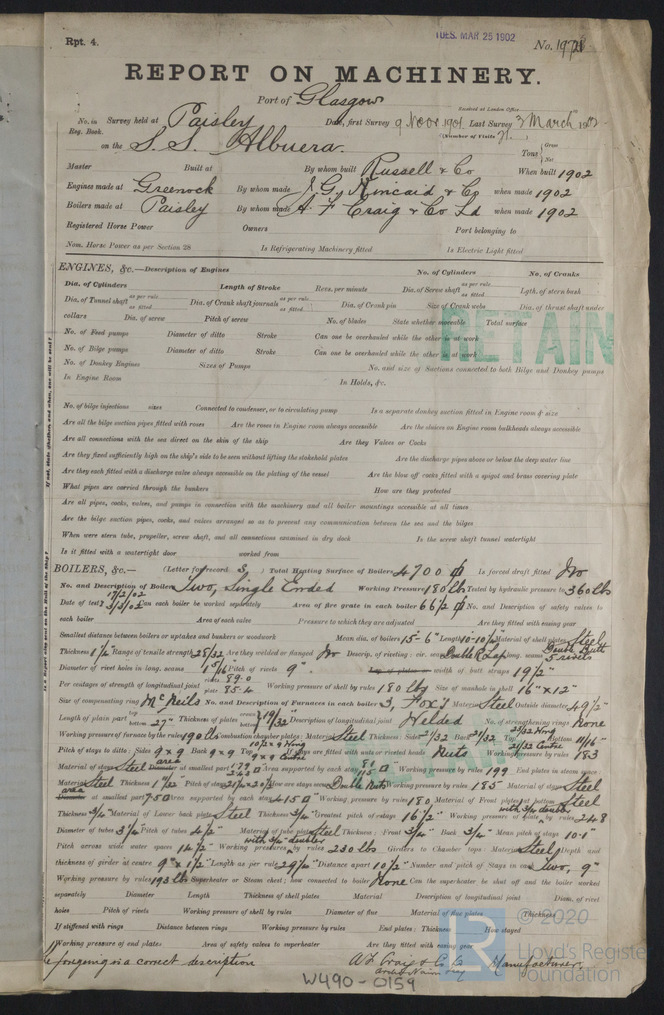 Rpt. 4.
TUES. MAR 25 1902
No.
REPORT ON MACHINERY.
Port of Glasgow
Received at London Office
No. in Survey held at Paisley Date, first Survey 9 Novr 1901 Last Survey 3 March 1902
Reg. Book. (Number of Visits 21.)
on the S.S. Albuera. Tons { Gross Net
Master Built at By whom built Russell & Co When built 1902
Engines made at Greenock By whom made J. G. Kincaid & Co when made 1902
Boilers made at Paisley By whom made A. F. Craig & Co Ld when made 1902
Registered Horse Power Owners Port belonging to
Nom. Horse Power as per Section 28 Is Refrigerating Machinery fitted Is Electric Light fitted
ENGINES, &c.—Description of Engines No. of Cylinders No. of Cranks
Dia. of Cylinders Length of Stroke Revs. per minute Dia. of Screw shaft as per rule as fitted Lgth. of stern bush
Dia. of Tunnel shaft as per rule as fitted Dia. of Crank shaft journals as per rule as fitted Dia. of Crank pin Size of Crank webs Dia. of thrust shaft under
collars Dia. of screw Pitch of screw No. of blades State whether moveable Total surface
RETAIN
No. of Feed pumps Diameter of ditto Stroke Can one be overhauled while the other is at work
No. of Bilge pumps Diameter of ditto Stroke Can one be overhauled while the other is at work
No. of Donkey Engines Sizes of Pumps No. and size of Suctions connected to both Bilge and Donkey pumps
In Engine Room In Holds, &c.
No. of bilge injections sizes Connected to condenser, or to circulating pump Is a separate donkey suction fitted in Engine room & size
Are all the bilge suction pipes fitted with roses Are the roses in Engine room always accessible Are the sluices on Engine room bulkheads always accessible
Are all connections with the sea direct on the skin of the ship Are they Valves or Cocks
Are they fixed sufficiently high on the ship's side to be seen without lifting the stokehold plates Are the discharge pipes above or below the deep water line
Are they each fitted with a discharge valve always accessible on the plating of the vessel Are the blow off cocks fitted with a spigot and brass covering plate
What pipes are carried through the bunkers How are they protected
Are all pipes, cocks, valves, and pumps in connection with the machinery and all boiler mountings accessible at all times
Are the bilge suction pipes, cocks, and valves arranged so as to prevent any communication between the sea and the bilges
When were stern tube, propeller, screw shaft, and all connections examined in dry dock Is the screw shaft tunnel watertight
Is it fitted with a watertight door worked from
BOILERS, &c.— (Letter for record S,) Total Heating Surface of Boilers 4700 Is forced draft fitted No
No. and Description of Boilers Two, Single Ended Working Pressure 180 lbs Tested by hydraulic pressure to 360 lbs
Date of test 17/2/02 3/3/02 Can each boiler to be worked separately Area of fire grate in each boiler 66½ No. and Description of safety valves to
each boiler Area of each valve Pressure to which they are adjusted Are they fitted with easing gear
Smallest distance between boilers or uptakes and bunkers or woodwork Mean dia. of boilers 15-6" Length 10-10½ Material of shell plates Steel
Thickness 1½" Range of tensile strength 28/32 Are they welded or flanged No Descrip. of riveting: cir. seams Double R Lap long. seams Double Butt 5 rivets
Diameter of rivet holes in long. seams 1 5/16" Pitch of rivets 9" width of butt straps 19½"
Per centages of strength of longitudinal joint rivets 89.0 plate 85.4 Working pressure of shell by rules 180 lbs Size of manhole in shell 16" x 12"
Size of compensating ring McNeils No. and Description of Furnaces in each boiler 3, Fox's Material Steel Outside diameter 49½"
Length of plain part top bottom 27" Thickness of plates crown bottom 19/32 Description of longitudinal joint Welded No. of strengthening rings None
Working pressure of furnace by the rules 190 lbs Combustion chamber plates: Material Steel Thickness: Sides 21/32 Back 21/32 Top 21/32 Wing 21/32 Centre Bottom 11/16"
Pitch of stays to ditto: Sides 9x9 Back 9x9 Top 10½x9 Wing 9x9 Centre If stays are fitted with nuts or riveted heads Nuts Working pressure by rules 183
Material of stays Steel area at smallest part 1.79 2.03 Area supported by each stay 81 115 Working pressure by rules 199 End plates in steam space
Material Steel Thickness 1 1/32" Pitch of stays 21½ x 20½ How are stays secured Double Nuts Working pressure by rules 185 Material of stays Steel
area at smallest part 7.50 Area supported by each stay 415 Working pressure by rules 180 Material of Front plates at bottom Steel
Thickness ¾" Material of Lower back plate Steel Thickness ¾" Greatest pitch of stays 16½" Working pressure of plate by rules 248 with ¾" doubler
Diameter of tubes 3¼ Pitch of tubes 4½" Material of tube plates Steel Thickness: Front ¾" Back ¾" Mean pitch of stays 10.1"
Pitch across wide water spaces 14½" Working pressures by rules 230 lbs with ¾" doubler Girders to Chamber tops: Material Steel Depth and
thickness of girder at centre 9" x 1½" Length as per rule 29¼" Distance apart 10½" Number and pitch of Stays in each Two, 9"
Working pressure by rules 193 lbs Superheater or Steam chest; how connected to boiler None Can the superheater be shut off and the boiler worked
separately Diameter Length Thickness of shell plates Material Description of longitudinal joint Diam. of rivet
holes Pitch of rivets Working pressure of shell by rules Diameter of flue Material of flue plates Thickness
If stiffened with rings Distance between rings Working pressure by rules End plates: Thickness How stayed
Working pressure of end plates Area of safety valves to superheater Are they fitted with easing gear
The foregoing is a correct description
A. F. Craig & Co Ld Manufacturer.
W490-0159
© 2020
Lloyd's Register
Foundation